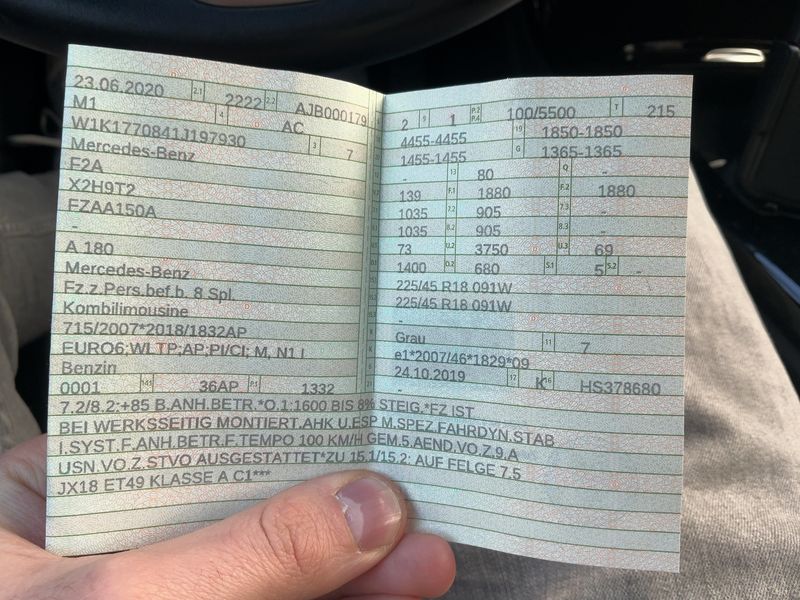 23.06.2020 2.1 2222 2.2 AJB000179
M1 4 AC
W1K1770841J197930 3 7
Mercedes-Benz
F2A
X2H9T2
FZAA150A
-
A 180
Mercedes-Benz
Fz.z.Pers.bef.b. 8 Spl.
Kombilimousine
715/2007*2018/1832AP
EURO6;WLTP;AP;PI/CI; M, N1 I
Benzin
0001 14.1 36AP P.1 1332
2 9 1 P.2 P.4 100/5500 T 215
4455-4455 19 1850-1850
1455-1455 G 1365-1365
- 13 80 Q -
139 F.1 1880 F.2 1880
1035 7.2 905 7.3 -
1035 8.2 905 8.3 -
73 U.2 3750 U.3 69
1400 O.2 680 S.1 5 S.2 -
225/45 R18 091W
225/45 R18 091W
-
Grau 11 7
e1*2007/46*1829*09
24.10.2019 17 K 16 HS378680
-
7.2/8.2:+85 B.ANH.BETR.*O.1:1600 BIS 8% STEIG.*FZ IST
BEI WERKSSEITIG MONTIERT.AHK U.ESP M.SPEZ.FAHRDYN.STAB
I.SYST.F.ANH.BETR.F.TEMPO 100 KM/H GEM.5.AEND.VO.Z.9.A
USN.VO.Z.STVO AUSGESTATTET*ZU 15.1/15.2: AUF FELGE 7,5
JX18 ET49 KLASSE A C1***